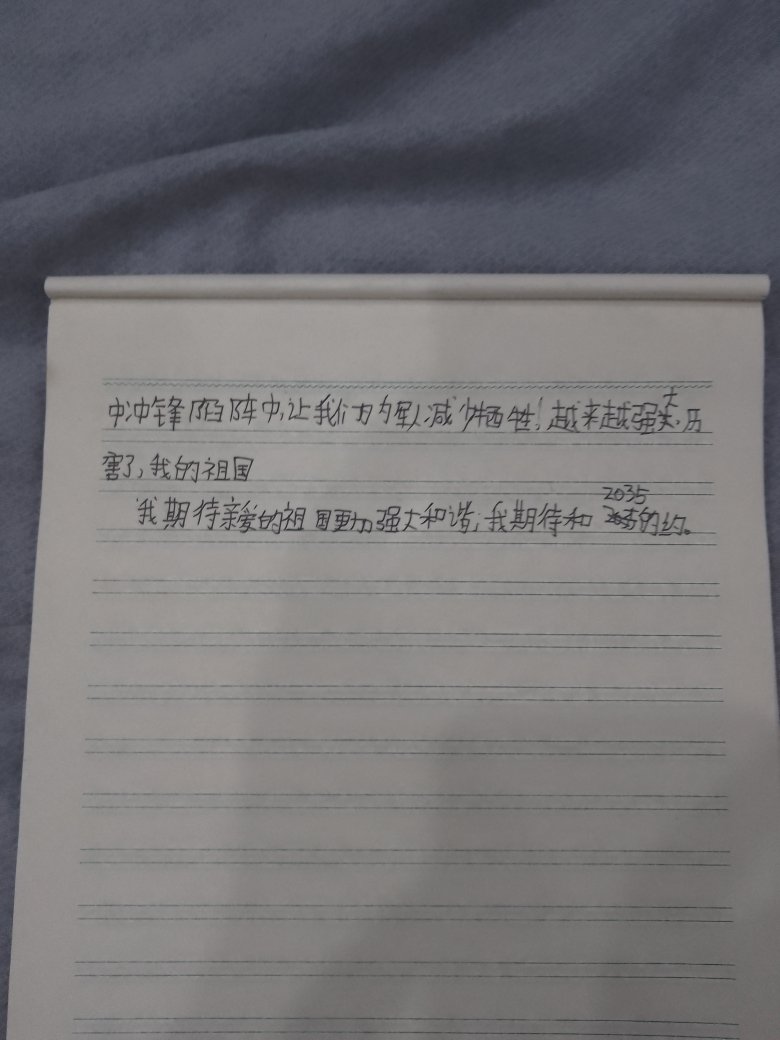 中冲锋陷阵中,让我们的军人减少牺牲!越来越强大,历
害了,我的祖国
我期待亲爱的祖国更加强大和谐,我期待和2035的约。